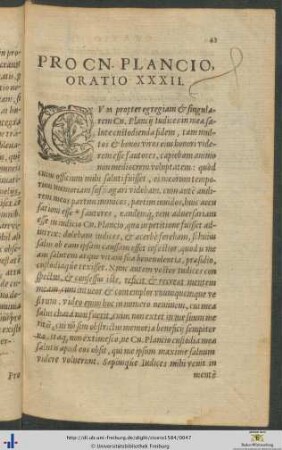 42
PRO CN. PLANCIO,
ORATIO XXXII.
CVM propter egregiam & singula-
rem CN. Plancij iudices in mea sa-
lute custodienda fidem, tam mul-
tos & bonos viros eius honori vide-
rem esse fautores, capiebam animo
non mediocrem voluptatem: quod
cuius officium mihi saluti fuisset, ei meorum tempo-
rum memoriam suffragari videbam. cum autē audi-
rem meos partim inimicos, partim inuidos, huic accu-
sationi esse fautores, eandemq; rem aduersariam
esse in iudicio Cn. Plancio, quæ in petitione fuisset ad-
iutrix: dolebam iudices, & acerbè ferebam, si huius
salus ob eam ipsam caussam esset infestior, quòd is me-
am salutem atque vitam sua beneuolentia, præsidio,
custodiaq́ue texisset. Nunc autem vester iudices con-
spectus, & consessus iste, reficit, & recreat mentem
meam, cum intueor & contemplor vnumquemque ve-
strûm. video enim hoc in numero neminem, cui mea
salus chara non fuerit, cuius non extet in me summum me-
ritū, cui nō sim obstrictus memoria beneficij sempiter
na. itaq; non extimesco, ne Cn. Plancio custodia meæ
salutis apud eos obsit, qui me ipsum maxime saluum
videre voluerunt. Sæpiusque Iudices mihi venit in
mentē
Pro
http://dl.ub.uni-freiburg.de/diglit/cicero1584/0047
© Universitätsbibliothek Freiburg
Baden-Württemberg